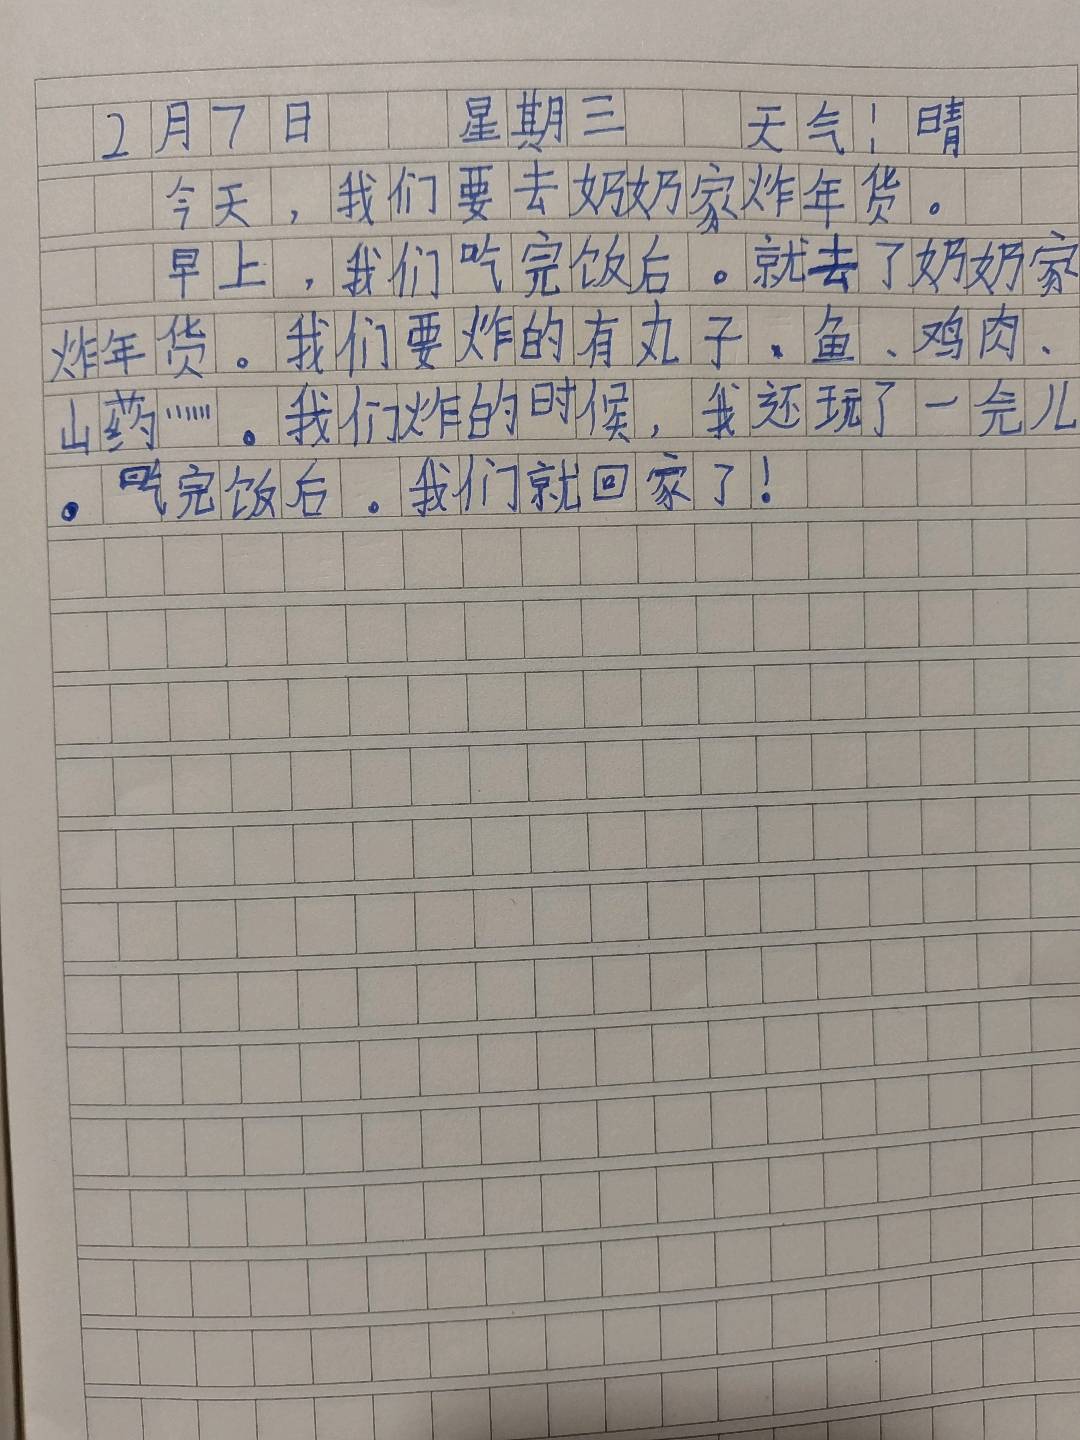 2月7日 星期三 天气：晴
今天，我们要去奶奶家炸年货。
早上，我们吃完饭后。就去了奶奶家
炸年货。我们要炸的有丸子、鱼、鸡肉、
山药……。我们炸的时候，我还玩了一会儿
。吃完饭后。我们就回家了！